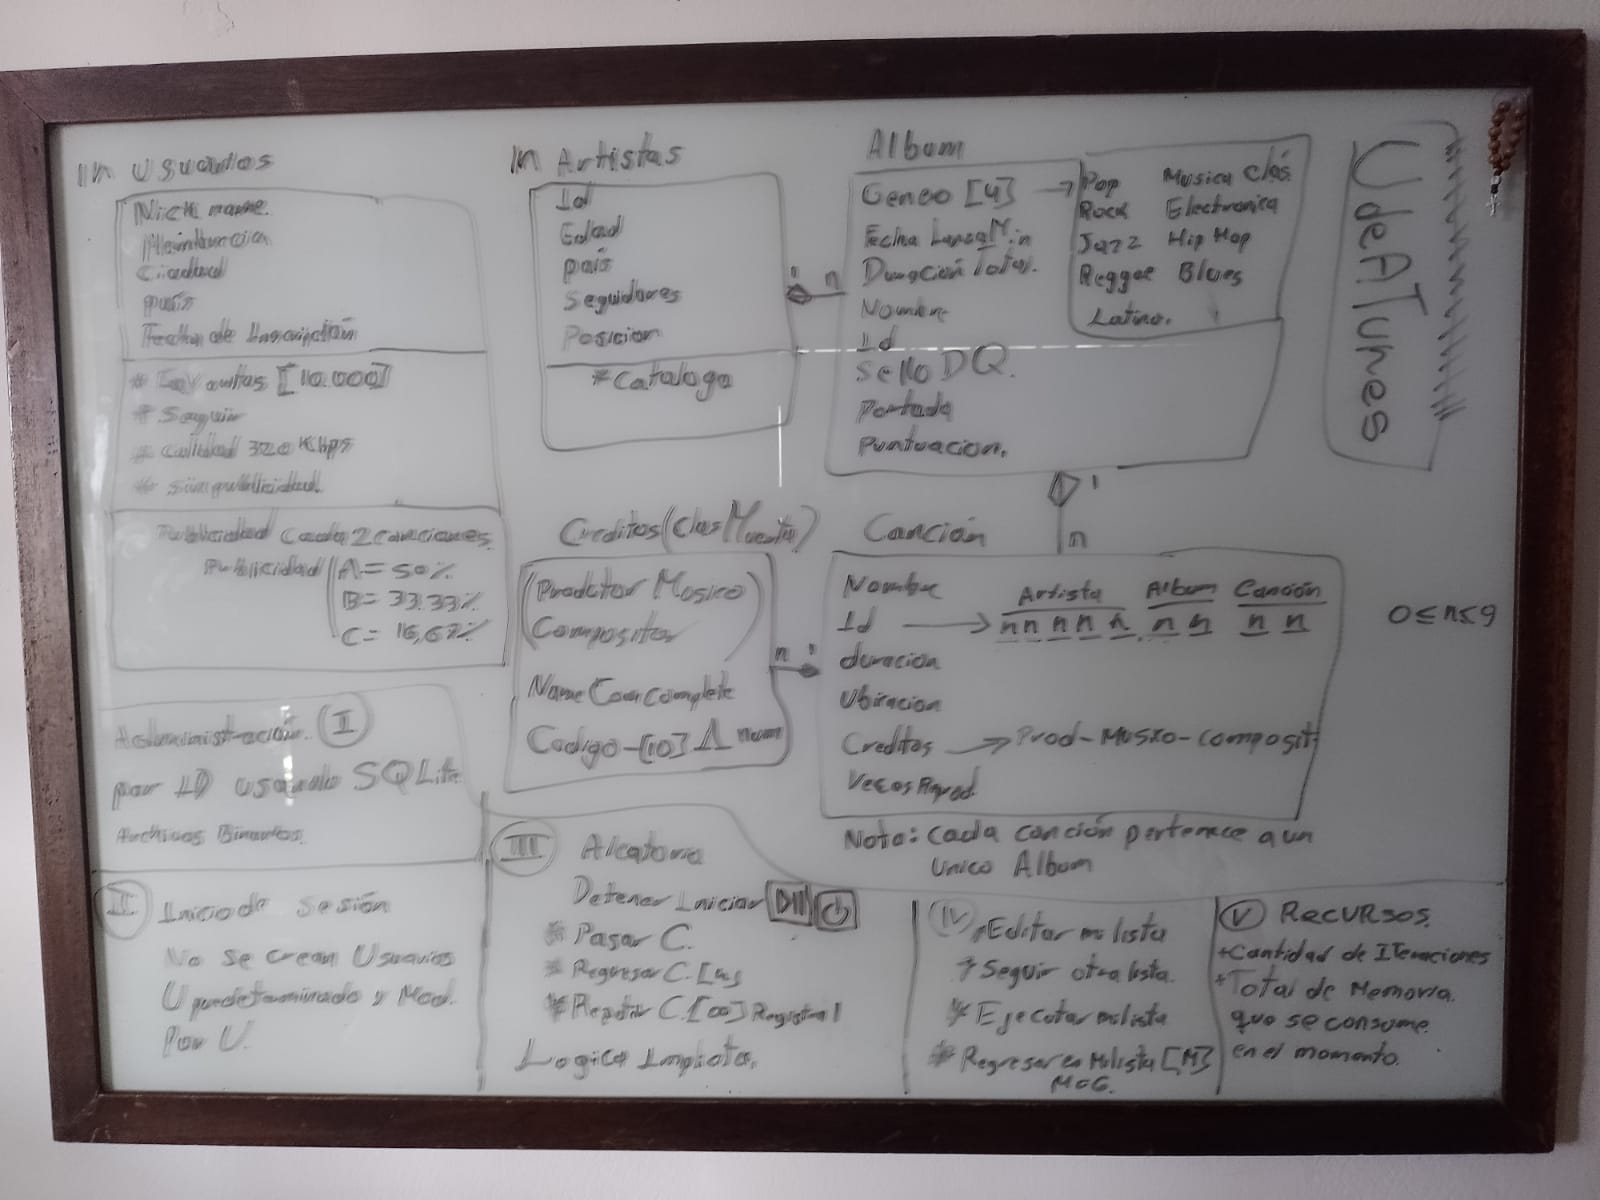 In Usuarios
Nick name.
Membrecia
Ciudad
país
Fecha de Inscripción
* Favoritas [10.000]
* Seguir
* Calidad 320 Kbps
* sin publicidad.
Publicidad cada 2 canciones.
Publicidad A = 50%
B = 33.33%
C = 16,67%
In Artistas
Id
Edad
país
Seguidores
Posicion
* Catalogo
1 n
Album
Geneo [4] →
Fecha Lanzam.
Duración Total.
Nombre
Id
Sello DQ.
Portada
Puntuacion.
Pop Musica Clás.
Rock Electronica
Jazz Hip Hop
Reggae Blues
Latino.
UdeATunes
1
n
Creditos
(Prodctor Mosico
Compositor)
Name Com complete
Codigo-[10] Λ num
n 1
Canción
Nombre
Artista Album Canción
Id → n n n n n n n n n
duración
Ubicacion
Creditos → Prod-Musxo-composit
Veces Reprod.
0 ≤ n ≤ 9
Nota: cada canción pertenece a un
Unico Album
Administración. I
por ID usando SQLite
Archivos Binarios.
II Inicio de Sesión
No se crean Usuarios
U predeterminado y Mod.
Por U.
III Aleatoria
Detener Iniciar
* Pasar C.
* Regresar C. [4]
* Repetir C. [∞]
Logica Implicita.
IV Editar mi lista
Seguir otra lista.
* Ejecutar mi lista
* Regresar en Mi lista [M]
V RECURSOS.
+ Cantidad de Iteraciones
+ Total de Memoria.
que se consume.
en el momento.